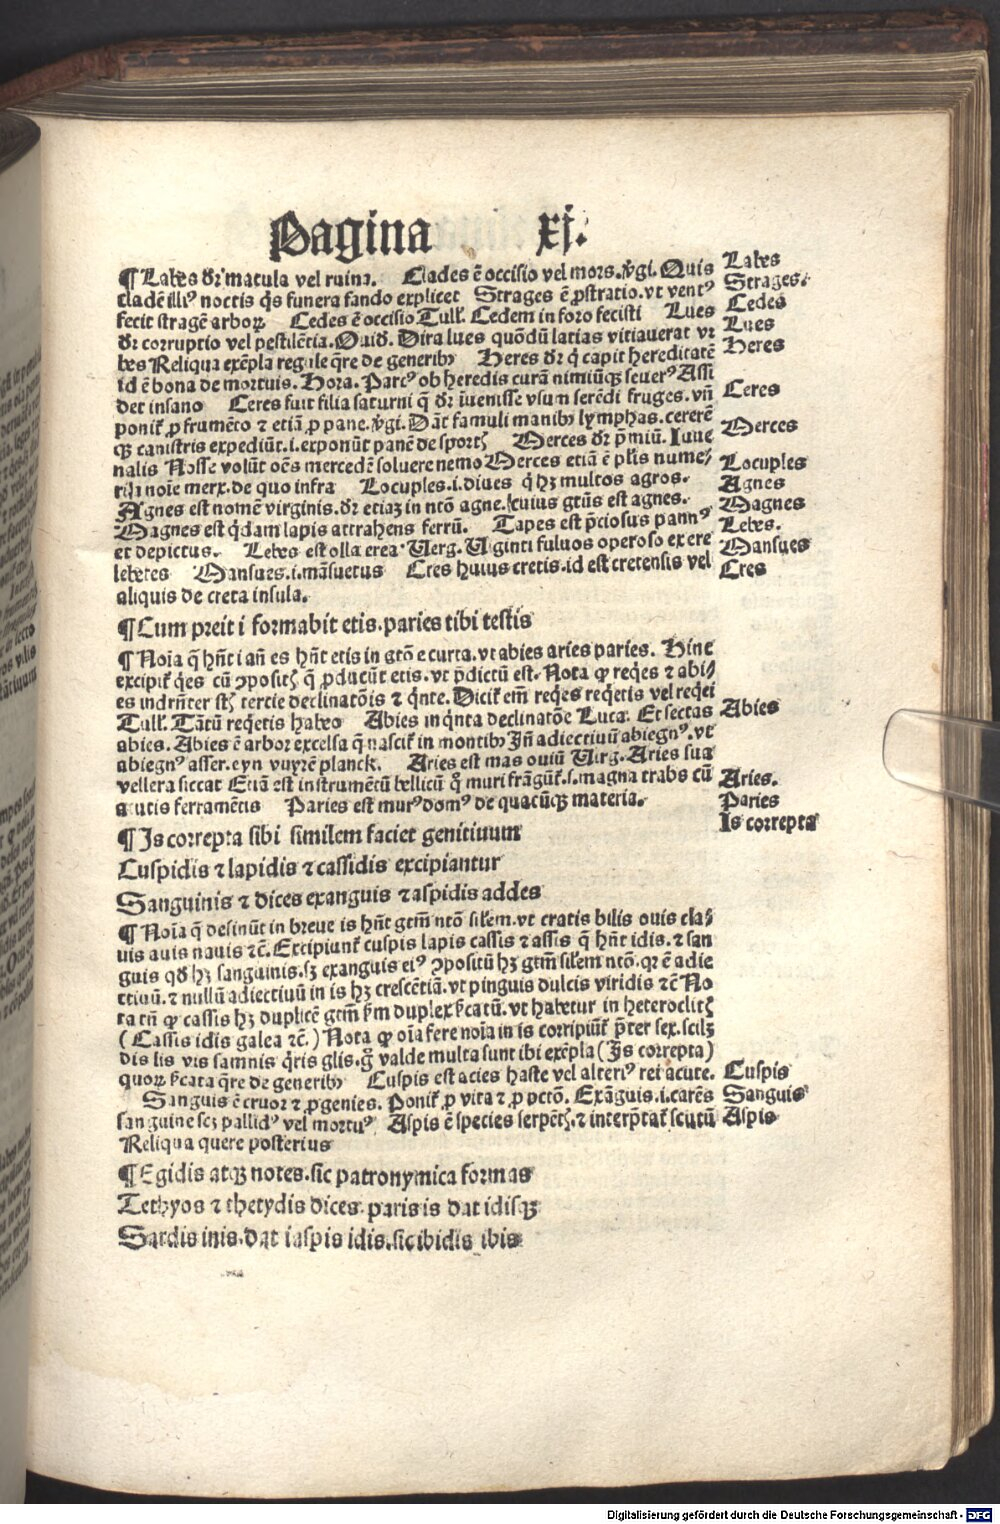 Pagina xj.
¶ Labes dr̄ macula vel ruina. Clades ē occisio vel mors. v̄gi. Quis
cladē illiꝰ noctis q̄s funera fando explicet Strages ē ꝓstratio. vt ventꝰ
fecit stragē arboꝝ Cedes ē occisio Tull. Cedem in foro fecisti Lues
dr̄ corruptio vel pestilētia. Ouid. Dira lues quōdū latias vitiauerat vr
bes Reliqua exēpla regule q̄re de generibꝰ Heres dr̄ q̇ capit hereditatē
id ē bona de mortuis. Hora. Parcꝰ ob heredis curā nimiūqꝫ seuerꝰ Assi
det insano Ceres fuit filia saturni q̄ dr̄ īuenisse vsum serēdi fruges. vn̄
ponit̄ ꝓ frumēto ⁊ etiā ꝓ pane. v̄gi. Dāt famuli manibꝰ lymphas. cererē
qꝫ canistris expediūt. i. exponūt panē de sportꝭ Merces dr̄ p̄miū. Iuue
nalis Nosse volūt oēs mercedē soluere nemo Merces etiā ē plīs nume⸗
ri ab noīe merx. de quo infra Locuples. i. diues q̇ hꝫ multos agros.
Agnes est nomē virginis. dr̄ etiaꝫ in ntō agne. cuius gtūs est agnes.
Magnes est q̇dam lapis attrahens ferrū. Tapes est p̄ciosus pannꝰ
et depictus. Lebes est olla erea. Verg. Viginti fuluos operoso ex ere
lebetes Mansues. i. māsuetus Cres huius cretis. id est cretensis vel
aliquis de creta insula.
¶ Cum preit i formabit etis. paries tibi testis
¶ Noīa q̄ hn̄t i an̄ es hn̄t etis in gtō e curta. vt abies aries paries. Hinc
excipit̄ q̇es cū ꝯpositꝭ q̄ ꝓducūt etis. vt p̄dictū est. Nota ꝙ reqes ⁊ abi⸗
es indrn̄ter stꝫ tercie declinatōis ⁊ q̇nte. Dicit̄ em̄ reqes reqetis vel reqei
Tull. Tātū reqetis habeo Abies in q̇nta declinatōe Luca. Et sectas
abies. Abies ē arbor excelsa q̄ nascit̄ in montibꝰ Jn̄ adiectiuū abiegnꝰ. vt
abiegnꝰ asser. eyn vuyrē planck. Aries est mas ouiū Virg. Aries sua
vellera siccat Etiā est instrumētū bellicū q̊ muri frāgūt̄. s. magna trabs cū
acutis ferramētis Paries est murꝰ domꝰ de quacūqꝫ materia.
¶ Is correpta sibi similem faciet genitiuum
Cuspidis ⁊ lapidis ⁊ cassidis excipiantur
Sanguinis ⁊ dices exanguis ⁊ aspidis addes
¶ Noīa q̄ desinūt in breue is hn̄t gtm̄ ntō silem. vt cratis bilis ouis cla⸗
uis auis nauis ⁊c̄. Excipiunt̄ cuspis lapis cassis ⁊ assis q̄ hn̄t idis. ⁊ san
guis qd̄ hꝫ sanguinis. sꝫ exanguis eiꝰ ꝯpositū hꝫ gtm̄ silem ntō. qꝛ ē adie
ctiuū. ⁊ nullū adiectiuū in is hꝫ crescētiā. vt pinguis dulcis viridis ⁊c̄ No
ta tn̄ ꝙ cassis hꝫ duplicē gtm̄ ẜm duplex ẜcatū. vt habetur in heteroclitꝭ
(Cassis idis galea ⁊c̄.) Nota ꝙ oīa fere noīa in is corripiūt̄ p̄ter sex. scilꝫ
dis lis vis samnis q̇ris glis. g̊ valde multa sunt ibi exēpla (Is correpta)
quoꝝ ẜcata q̄re de generibꝰ Cuspis est acies haste vel alteriꝰ rei acute.
Sanguis ē cruor ⁊ ꝓgenies. Ponit̄ ꝓ vita ⁊ ꝓ pctō. Exāguis. i. carēs
sanguine scꝫ pallidꝰ vel mortuꝰ Aspis ē species serpētꝭ. ⁊ interp̄tat̄ scutū
Reliqua quere posterius
¶ Egidis atqꝫ notes. sic patronymica formas
Tethyos ⁊ thetydis dices. paris is dat idisqꝫ
Sardis inis. dat iaspis idis. sic ibidis ibis
Labes
Strages.
Cedes
Lues
Heres
Ceres
Merces
Locuples
Agnes
Magnes
Lebes.
Mansues
Cres
Abies
Aries.
Paries
Is correpta
Cuspis
Sanguis
Aspis
Digitalisierung gefördert durch die Deutsche Forschungsgemeinschaft - DFG